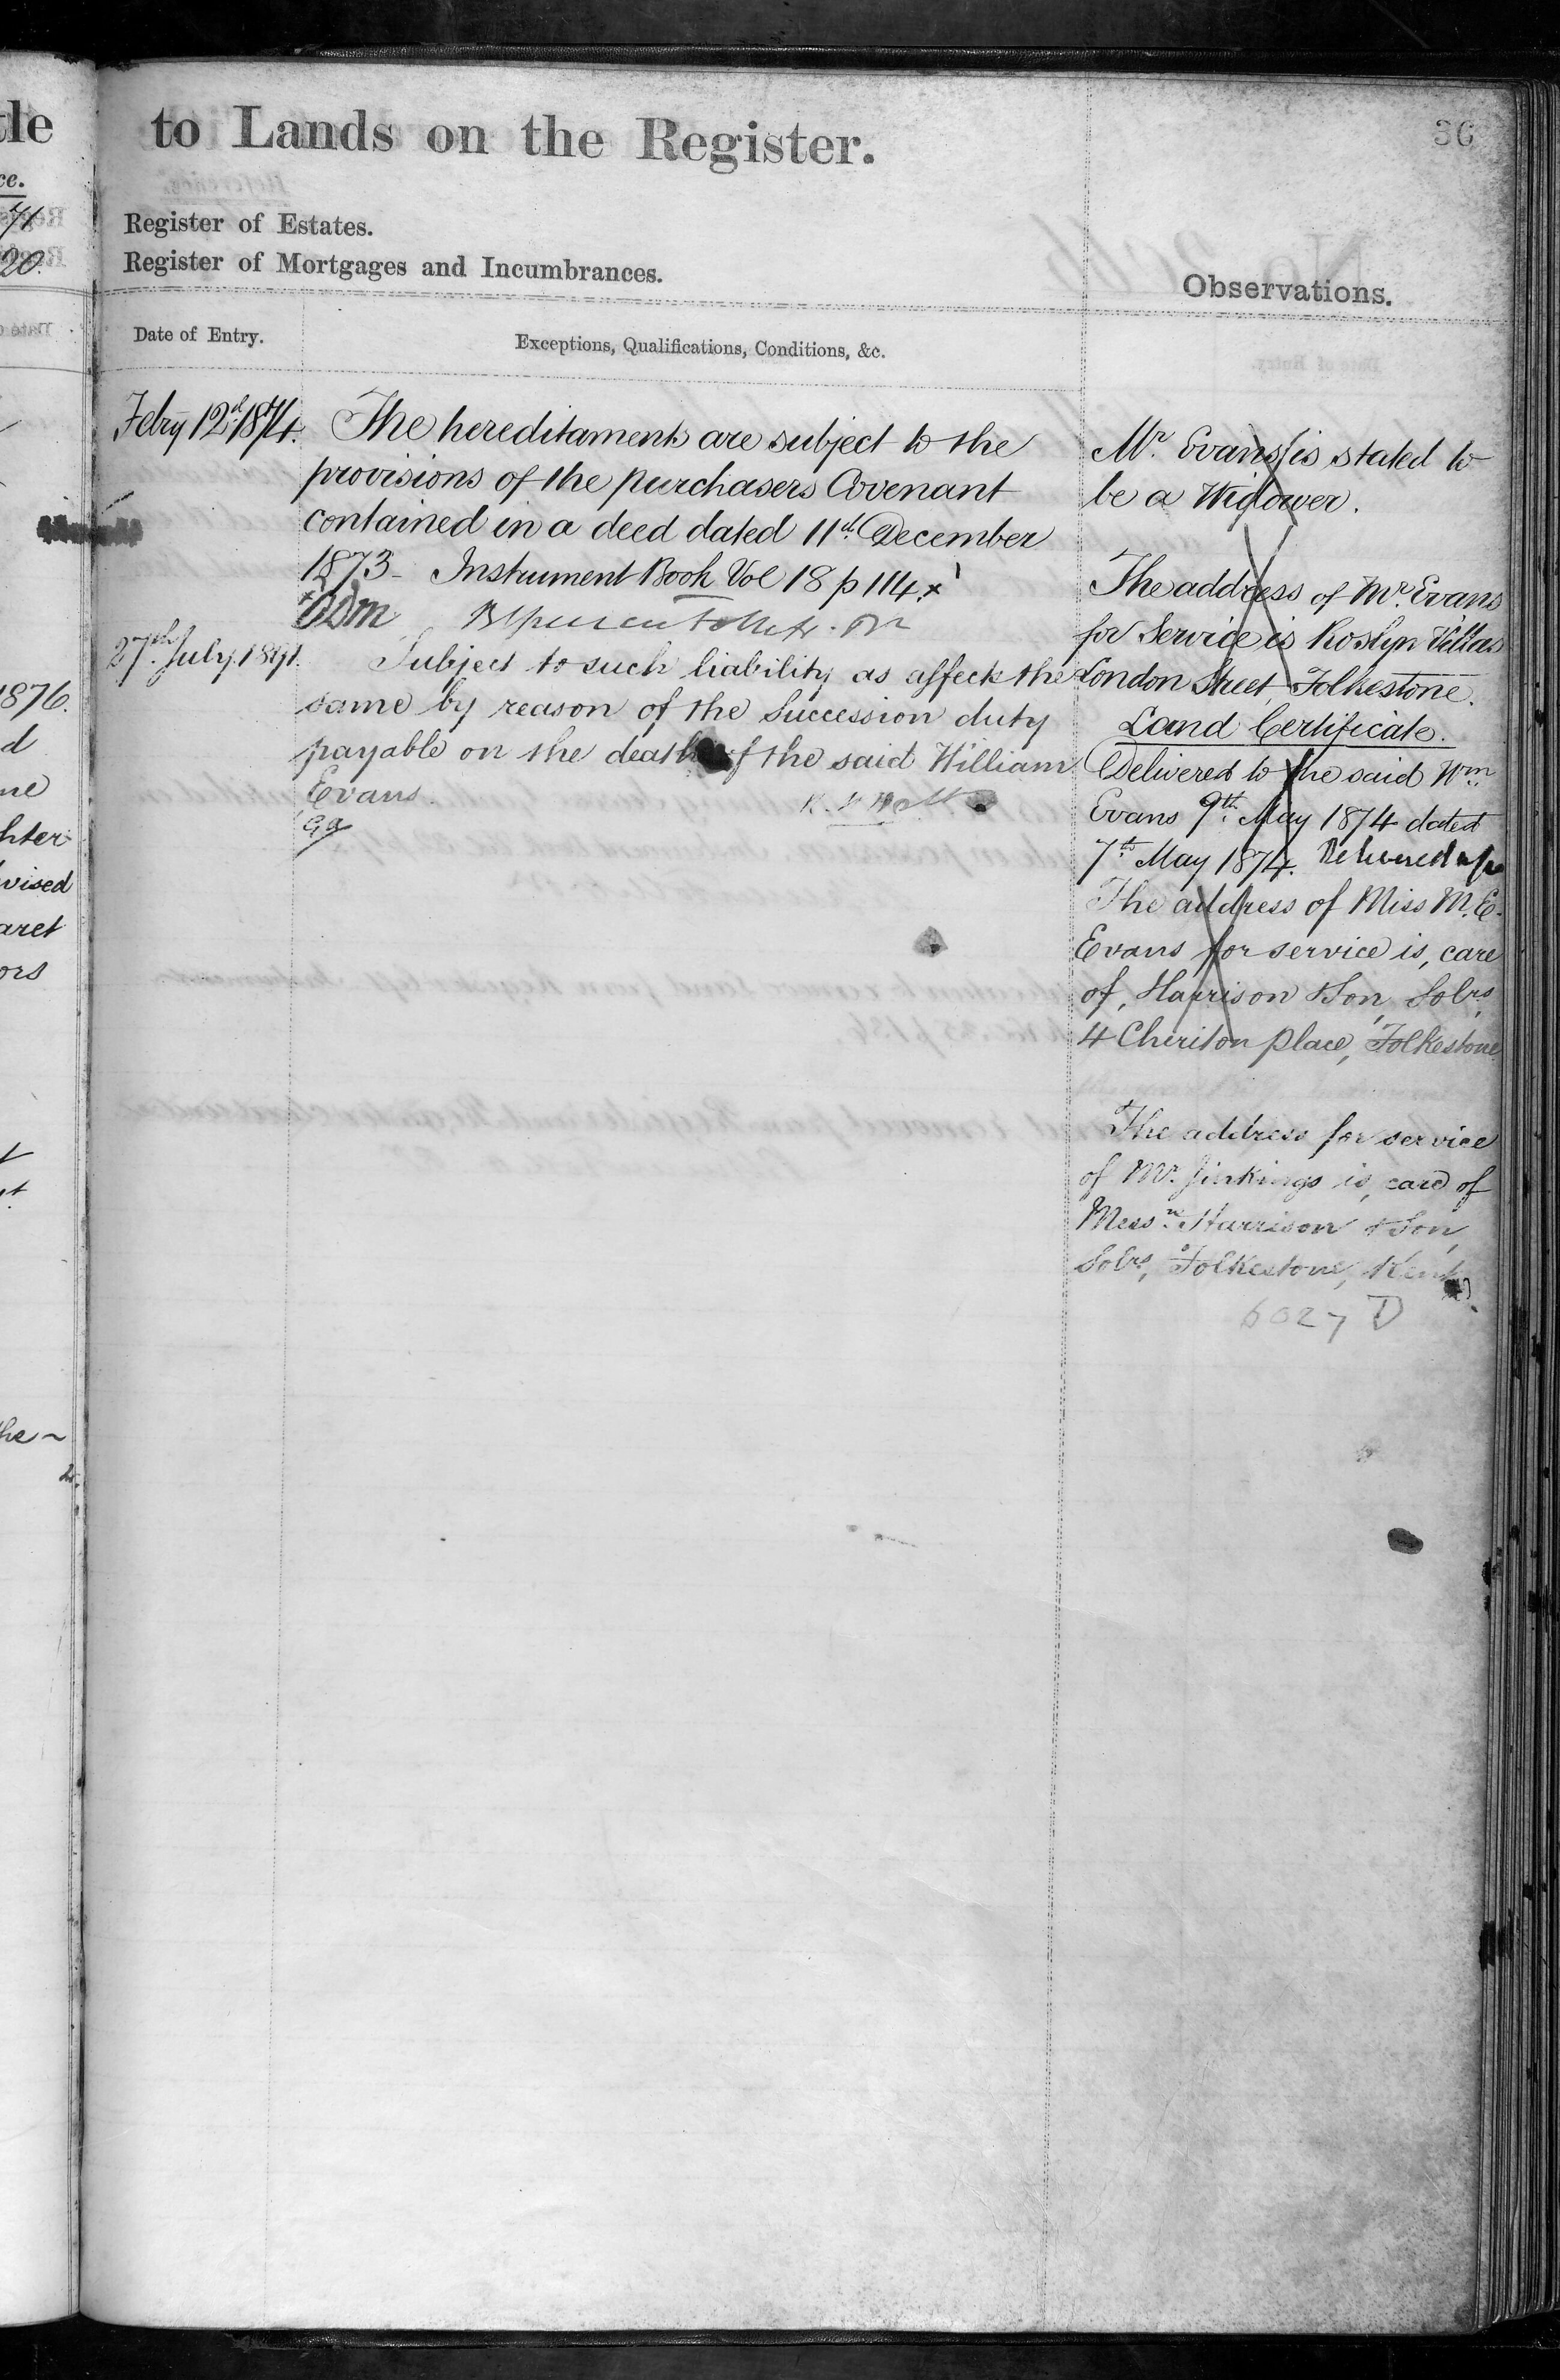 tle
ce.
71
20.
1876.
d
ne
hter
vised
aret
ors
he ~
to Lands on the Register.
36
Register of Estates.
Register of Mortgages and Incumbrances.
Observations.
Date of Entry.
Exceptions, Qualifications, Conditions, &c.
Febry 12th 1874.
The hereditaments are subject to the
provisions of the purchasers Covenant
contained in a deed dated 11th December
1873 - Instrument Book Vol 18 p 114 x
27th July 1891.
Subject to such liability as affects the
same by reason of the Succession duty
payable on the death of the said William
Evans.
Mr. Evans is stated to
be a Widower.
The address of Mr. Evans
for Service is Roslyn Villas
London Street, Folkestone.
Land Certificate.
Delivered to the said Wm.
Evans 9th May 1874 dated
7th May 1874. Delivered up
The address of Miss M. E.
Evans for service is, care
of, Harrison & Son, Solrs,
4 Cheriton place, Folkestone
The address for service
of Mr. Jinkings is, care of
Messrs. Harrison & Son,
Solrs, Folkestone, Kent
6027 D